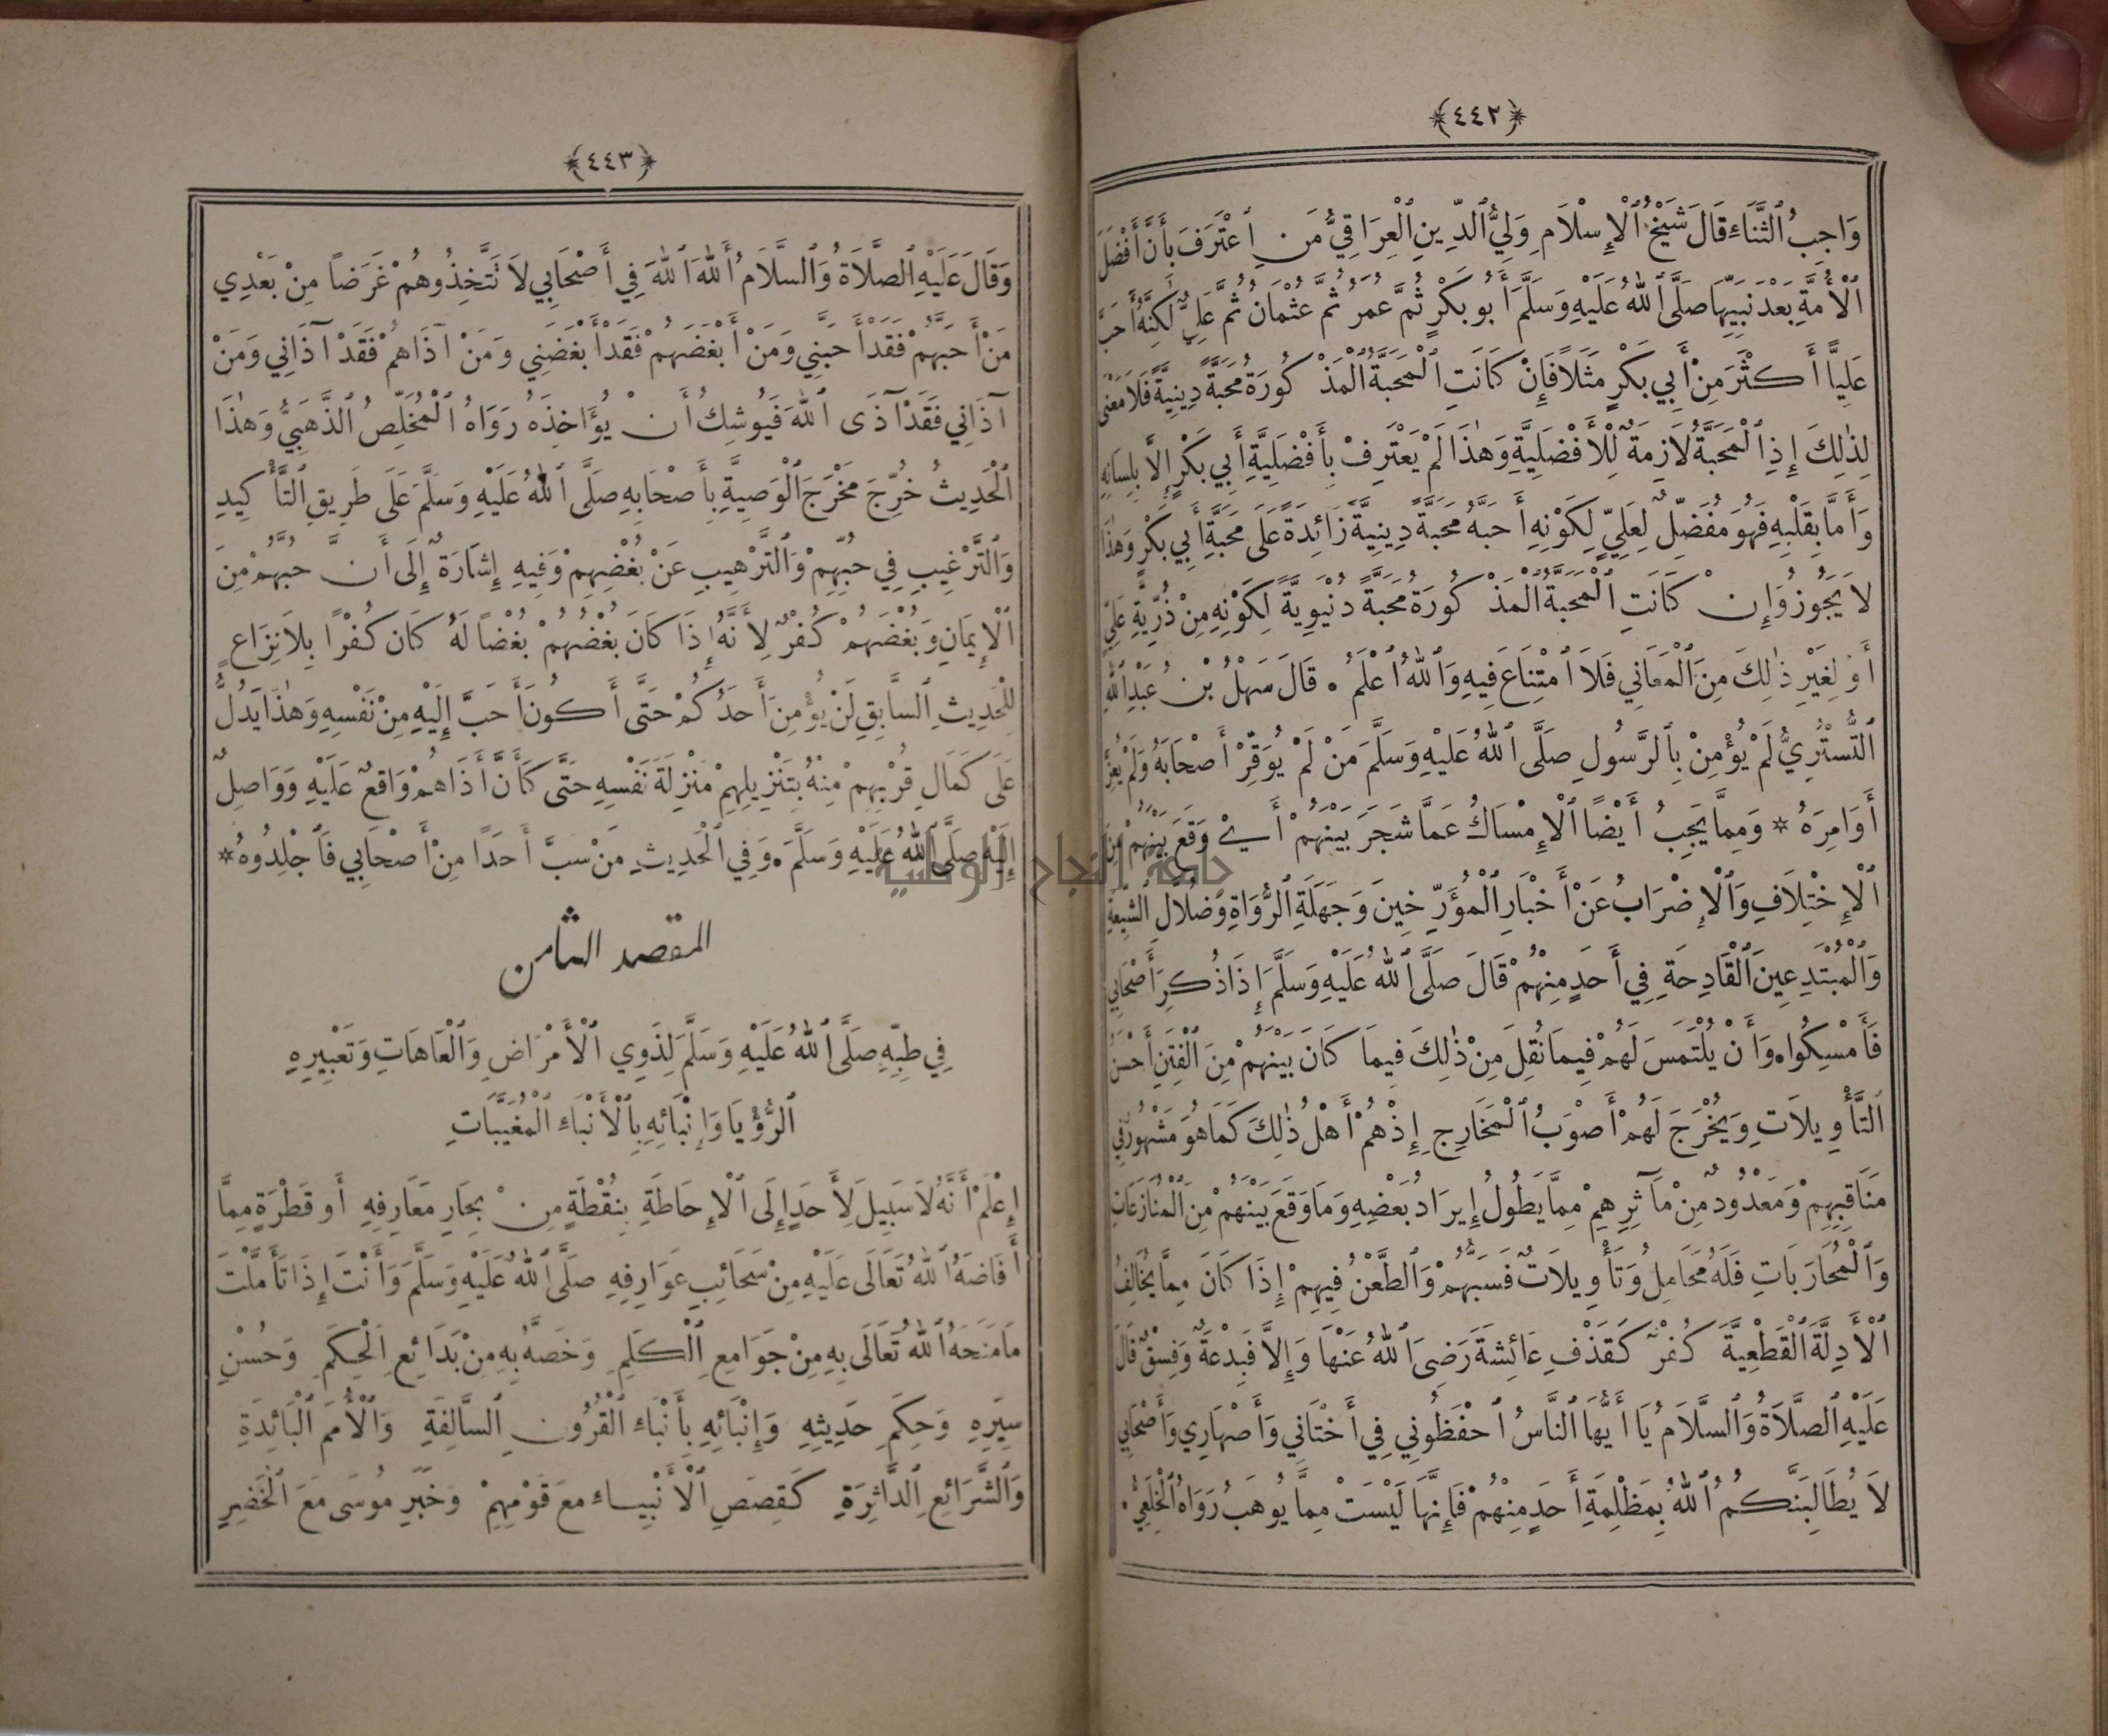 ﴿٤٤٢﴾
وَاجِبُ ٱلثَّنَاءِ قَالَ شَيْخُ ٱلْإِسْلَامِ وَلِيُّ ٱلدِّينِ ٱلْعِرَاقِيُّ مَنِ ٱعْتَرَفَ بِأَنَّ أَفْضَلَ
ٱلْأُمَّةِ بَعْدَ نَبِيِّهَا صَلَّى ٱللهُ عَلَيْهِ وَسَلَّمَ أَبُو بَكْرٍ ثُمَّ عُمَرُ ثُمَّ عُثْمَانُ ثُمَّ عَلِيٌّ لٰكِنَّهُ أَحَبَّ
عَلِيًّا أَكْثَرَ مِنْ أَبِي بَكْرٍ مَثَلًا فَإِنْ كَانَتِ ٱلْمَحَبَّةُ ٱلْمَذْكُورَةُ مَحَبَّةً دِينِيَّةً فَلَا مَعْنَى
لِذٰلِكَ إِذِ ٱلْمَحَبَّةُ لَازِمَةٌ لِلْأَفْضَلِيَّةِ وَهٰذَا لَمْ يَعْتَرِفْ بِأَفْضَلِيَّةِ أَبِي بَكْرٍ إِلَّا بِلِسَانِهِ
وَأَمَّا بِقَلْبِهِ فَهُوَ مُفَضِّلٌ لِعَلِيٍّ لِكَوْنِهِ أَحَبَّهُ مَحَبَّةً دِينِيَّةً زَائِدَةً عَلَى مَحَبَّةِ أَبِي بَكْرٍ وَهٰذَا
لَا يَجُوزُ وَإِنْ كَانَتِ ٱلْمَحَبَّةُ ٱلْمَذْكُورَةُ مَحَبَّةً دُنْيَوِيَّةً لِكَوْنِهِ مِنْ ذُرِّيَّةِ عَلِيٍّ
أَوْ لِغَيْرِ ذٰلِكَ مِنَ ٱلْمَعَانِي فَلَا ٱمْتِنَاعَ فِيهِ وَٱللهُ أَعْلَمُ . قَالَ سَهْلُ بْنُ عَبْدِ ٱللهِ
ٱلتُّسْتَرِيُّ لَمْ يُؤْمِنْ بِٱلرَّسُولِ صَلَّى ٱللهُ عَلَيْهِ وَسَلَّمَ مَنْ لَمْ يُوَقِّرْ أَصْحَابَهُ وَلَمْ يُعِزَّ
أَوَامِرَهُ * وَمِمَّا يَجِبُ أَيْضًا ٱلْإِمْسَاكُ عَمَّا شَجَرَ بَيْنَهُمْ أَيْ وَقَعَ بَيْنَهُمْ مِنَ
ٱلْإِخْتِلَافِ وَٱلْإِضْرَابُ عَنْ أَخْبَارِ ٱلْمُؤَرِّخِينَ وَجَهَلَةِ ٱلرُّوَاةِ وَضُلَّالِ ٱلشِّيعَةِ
وَٱلْمُبْتَدِعِينَ ٱلْقَادِحَةِ فِي أَحَدٍ مِنْهُمْ قَالَ صَلَّى ٱللهُ عَلَيْهِ وَسَلَّمَ إِذَا ذُكِرَ أَصْحَابِي
فَأَمْسِكُوا وَأَنْ يُلْتَمَسَ لَهُمْ فِيمَا نُقِلَ مِنْ ذٰلِكَ فِيمَا كَانَ بَيْنَهُمْ مِنَ ٱلْفِتَنِ أَحْسَنُ
ٱلتَّأْوِيلَاتِ وَيُخْرَجَ لَهُمْ أَصْوَبُ ٱلْمَخَارِجِ إِذْ هُمْ أَهْلُ ذٰلِكَ كَمَا هُوَ مَشْهُورٌ فِي
مَنَاقِبِهِمْ وَمَعْدُودٌ مِنْ مَآثِرِهِمْ مِمَّا يَطُولُ إِيرَادُ بَعْضِهِ وَمَا وَقَعَ بَيْنَهُمْ مِنَ ٱلْمُنَازَعَاتِ
وَٱلْمُحَارَبَاتِ فَلَهُ مَحَامِلُ وَتَأْوِيلَاتٌ فَسَبُّهُمْ وَٱلطَّعْنُ فِيهِمْ إِذَا كَانَ مِمَّا يُخَالِفُ
ٱلْأَدِلَّةَ ٱلْقَطْعِيَّةَ كُفْرٌ كَقَذْفِ عَائِشَةَ رَضِيَ ٱللهُ عَنْهَا وَإِلَّا فَبِدْعَةٌ وَفِسْقٌ قَالَ
عَلَيْهِ ٱلصَّلَاةُ وَٱلسَّلَامُ يَا أَيُّهَا ٱلنَّاسُ ٱحْفَظُونِي فِي أَخْتَانِي وَأَصْهَارِي وَأَصْحَابِي
لَا يُطَالِبَنَّكُمُ ٱللهُ بِمَظْلِمَةِ أَحَدٍ مِنْهُمْ فَإِنَّهَا لَيْسَتْ مِمَّا يُوهَبُ رَوَاهُ ٱلْخِلَعِيُّ .
﴿٤٤٣﴾
وَقَالَ عَلَيْهِ ٱلصَّلَاةُ وَٱلسَّلَامُ أَللهَ ٱللهَ فِي أَصْحَابِي لَا تَتَّخِذُوهُمْ غَرَضًا مِنْ بَعْدِي
مَنْ أَحَبَّهُمْ فَقَدْ أَحَبَّنِي وَمَنْ أَبْغَضَهُمْ فَقَدْ أَبْغَضَنِي وَمَنْ آذَاهُمْ فَقَدْ آذَانِي وَمَنْ
آذَانِي فَقَدْ آذَى ٱللهَ فَيُوشِكُ أَنْ يُؤَاخِذَهُ رَوَاهُ ٱلْمُخَلِّصُ ٱلذَّهَبِيُّ وَهٰذَا
ٱلْحَدِيثُ خُرِّجَ مَخْرَجَ ٱلْوَصِيَّةِ بِأَصْحَابِهِ صَلَّى ٱللهُ عَلَيْهِ وَسَلَّمَ عَلَى طَرِيقِ ٱلتَّأْكِيدِ
وَٱلتَّرْغِيبِ فِي حُبِّهِمْ وَٱلتَّرْهِيبِ عَنْ بُغْضِهِمْ وَفِيهِ إِشَارَةٌ إِلَى أَنَّ حُبَّهُمْ مِنَ
ٱلْإِيمَانِ وَبُغْضَهُمْ كُفْرٌ لِأَنَّهُ إِذَا كَانَ بُغْضُهُمْ بُغْضًا لَهُ كَانَ كُفْرًا بِلَا نِزَاعٍ
لِلْحَدِيثِ ٱلسَّابِقِ لَنْ يُؤْمِنَ أَحَدُكُمْ حَتَّى أَكُونَ أَحَبَّ إِلَيْهِ مِنْ نَفْسِهِ وَهٰذَا يَدُلُّ
عَلَى كَمَالِ قُرْبِهِمْ مِنْهُ بِتَنْزِيلِهِمْ مَنْزِلَةَ نَفْسِهِ حَتَّى كَأَنَّ أَذَاهُمْ وَاقِعٌ عَلَيْهِ وَوَاصِلٌ
إِلَيْهِ صَلَّى ٱللهُ عَلَيْهِ وَسَلَّمَ . وَفِي ٱلْحَدِيثِ مَنْ سَبَّ أَحَدًا مِنْ أَصْحَابِي فَٱجْلِدُوهُ *
المقصد الثامن
فِي طِبِّهِ صَلَّى ٱللهُ عَلَيْهِ وَسَلَّمَ لِذَوِي ٱلْأَمْرَاضِ وَٱلْعَاهَاتِ وَتَعْبِيرِهِ
ٱلرُّؤْيَا وَإِنْبَائِهِ بِٱلْأَنْبَاءِ ٱلْمُغَيَّبَاتِ
إِعْلَمْ أَنَّهُ لَا سَبِيلَ لِأَحَدٍ إِلَى ٱلْإِحَاطَةِ بِنُقْطَةٍ مِنْ بِحَارِ مَعَارِفِهِ أَو قَطْرَةٍ مِمَّا
أَفَاضَهُ ٱللهُ تَعَالَى عَلَيْهِ مِنْ سَحَائِبِ عَوَارِفِهِ صَلَّى ٱللهُ عَلَيْهِ وَسَلَّمَ وَأَنْتَ إِذَا تَأَمَّلْتَ
مَا مَنَحَهُ ٱللهُ تَعَالَى بِهِ مِنْ جَوَامِعِ ٱلْكَلِمِ وَخَصَّهُ بِهِ مِنْ بَدَائِعِ ٱلْحِكَمِ وَحُسْنِ
سِيَرِهِ وَحِكَمِ حَدِيثِهِ وَإِنْبَائِهِ بِأَنْبَاءِ ٱلْقُرُونِ ٱلسَّالِفَةِ وَٱلْأُمَمِ ٱلْبَائِدَةِ
وَٱلشَّرَائِعِ ٱلدَّاثِرَةِ كَقِصَصِ ٱلْأَنْبِيَاءِ مَعَ قَوْمِهِمْ وَخَبَرِ مُوسَى مَعَ ٱلْخَضِرِ
جامعة النجاح الوطنية